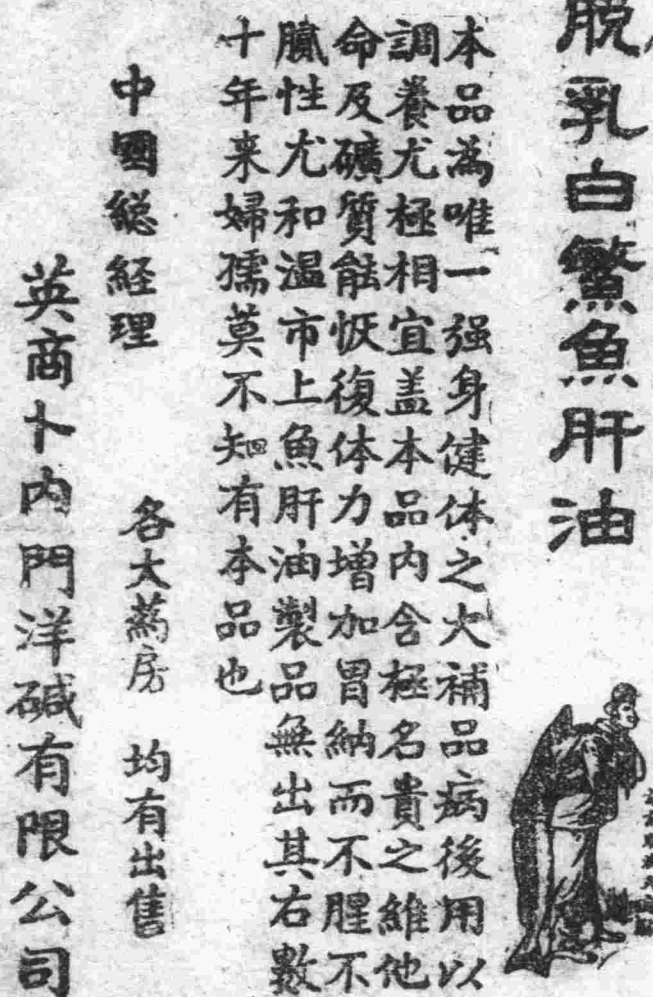 脫乳白鰵魚肝油
本品為唯一强身健体之大補品病後用以
調養尤極相宜盖本品内含極名貴之維他
命及礦質能恢復体力增加胃納而不腥不
膩性尤和温市上魚肝油製品無出其右數
十年来婦孺莫不知有本品也
中國總経理
各大藥房 均有出售
英商卜内門洋碱有限公司